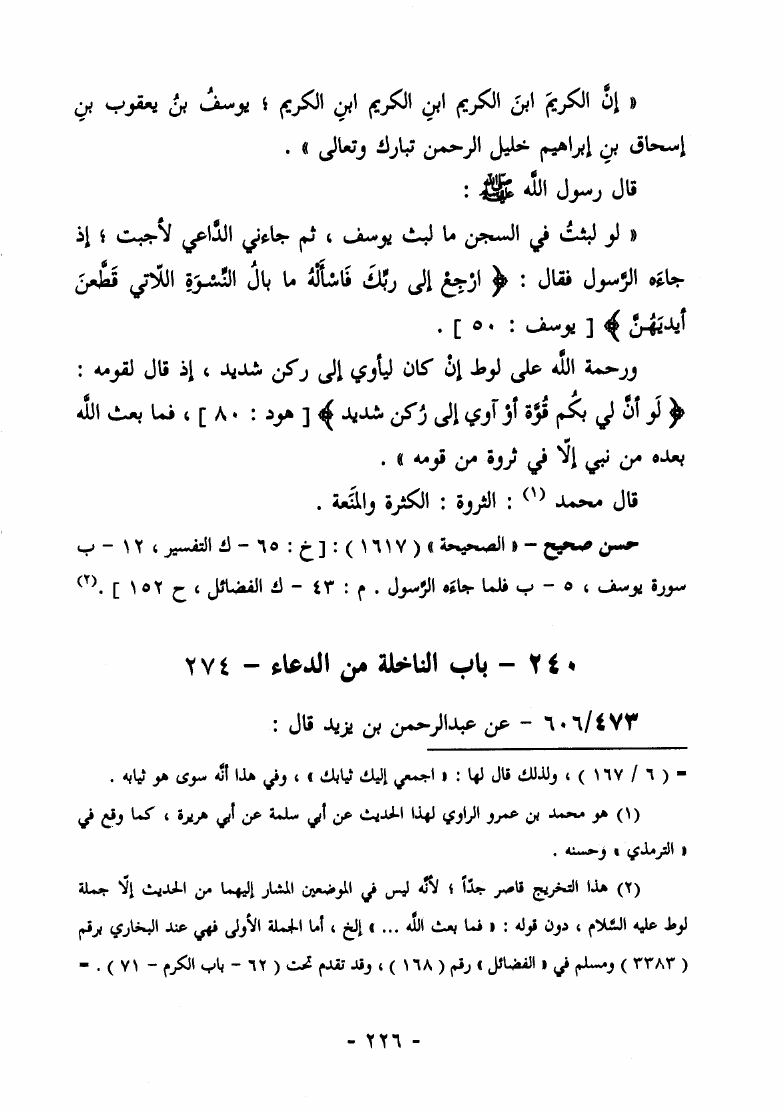 « إنَّ الكريمَ ابنَ الكريم ابنِ الكريم ابنِ الكريم ؛ يوسفُ بنُ يعقوب بنِ
إسحاق بنِ إبراهيم خليل الرحمن تبارك وتعالى » .
قال رسول اللّه ﷺ :
« لو لبثتُ في السجن ما لبث يوسف ، ثم جاءني الدَّاعي لأجبت ؛ إذ
جاءَه الرَّسول فقال : ﴿ ارْجِعْ إلى ربِّكَ فَاسْأَلْهُ ما بالُ النِّسْوَةِ اللّاتي قَطَّعنَ
أيديَهُنَّ ﴾ [ يوسف : ٥٠ ] .
ورحمة اللّه على لوط إنْ كان ليأوي إلى ركن شديد ، إذ قال لقومه :
﴿ لَو أنَّ لي بكُم قُوَّة أوْ آوي إلى رُكن شديد ﴾ [ هود : ٨٠ ] ، فما بعث اللّه
بعده من نبي إلّا في ثروة من قومه » .
قال محمد (١) : الثروة : الكثرة والمَنَعة .
حسن صحيح – « الصحيحة » ( ١٦١٧ ) : [ خ : ٦٥ – ك التفسير ، ١٢ – ب
سورة يوسف ، ٥ – ب فلما جاءَه الرَّسول . م : ٤٣ – ك الفضائل ، ح ١٥٢ ] . (٢)
٢٤٠ – باب الناخلة من الدعاء – ٢٧٤
٦٠٦/٤٧٣ – عن عبدالرحمن بن يزيد قال :
= ( ٦ / ١٦٧ ) ، ولذلك قال لها : « اجمعي إليك ثيابك » ، وفي هذا أنَّه سوى هو ثيابه .
(١) هو محمد بن عمرو الراوي لهذا الحديث عن أبي سلمة عن أبي هريرة ، كما وقع في
« الترمذي » وحسنه .
(٢) هذا التخريج قاصر جدّاً ؛ لأنَّه ليس في الموضعين المشار إليهما من الحديث إلّا جملة
لوط عليه السَّلام ، دون قوله : « فما بعث اللّه ... » إلخ ، أما الجملة الأولى فهي عند البخاري برقم
( ٣٣٨٣ ) ومسلم في « الفضائل » رقم ( ١٦٨ ) ، وقد تقدم تحت ( ٦٢ – باب الكرم – ٧١ ) . =
- ٢٢٦ -